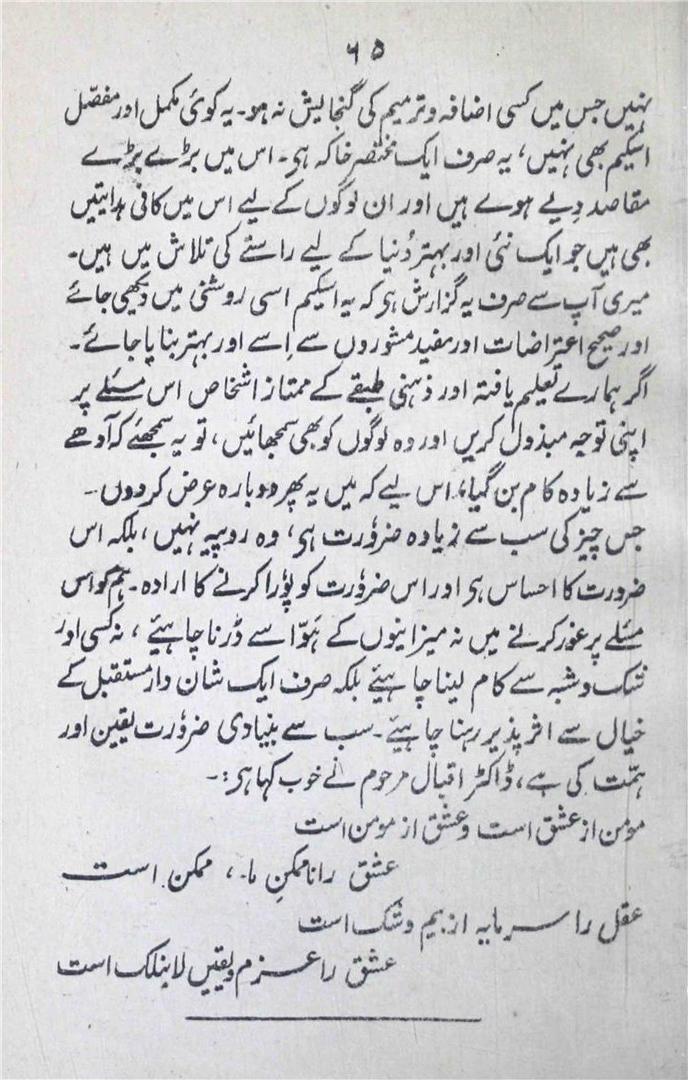 ۶۵
نہیں جس میں کسی اضافہ و ترمیم کی گنجایش نہ ہو۔ یہ کوئی مکمل اور مفصّل
اسکیم بھی نہیں، یہ صرف ایک مختصر خاکہ ہی۔ اس میں بڑے بڑے
مقاصد دیے ہوے ہیں اور ان لوگوں کے لیے اس میں کافی ہدایتیں
بھی ہیں جو ایک نئی اور بہتر دُنیا کے لیے راستے کی تلاش میں ہیں۔
میری آپ سے صرف یہ گزارش ہی کہ یہ اسکیم اسی روشنی میں دیکھی جائے
اور صحیح اعتراضات اور مفید مشوروں سے اِسے اور بہتر بنایا جائے۔
اگر ہمارے تعلیم یافتہ اور ذہنی طبقے کے ممتاز اشخاص اس مسئلے پر
اپنی توجہ مبذول کریں اور وہ لوگوں کو بھی سمجھائیں، تو یہ سمجھئے کہ آدھے
سے زیادہ کام بن گیا، اس لیے کہ میں یہ پھر دوبارہ عرض کر دوں۔
جس چیز کی سب سے زیادہ ضرورت ہی، وہ روپیہ نہیں، بلکہ اس
ضرورت کا احساس ہی اور اس ضرورت کو پؤرا کرنے کا ارادہ۔ ہم کو اس
مسئلے پر غور کرنے میں نہ میزانیوں کے ہَوّا سے ڈرنا چاہیئے، نہ کسی اور
شک و شبہ سے کام لینا چاہیئے بلکہ صرف ایک شان دار مستقبل کے
خیال سے اثر پذیر رہنا چاہیے۔ سب سے بنیادی ضرورت یقین اور
ہمّت کی ہے، ڈاکٹر اقبال مرحوم نے خوب کہا ہی:۔
مومن از عشق است و عشق از مومن است
عشق را ناممکنِ ما، ممکن است
عقل را سرمایہ از بیم و شک است
عشق را عزم و یقیں لاینفک است